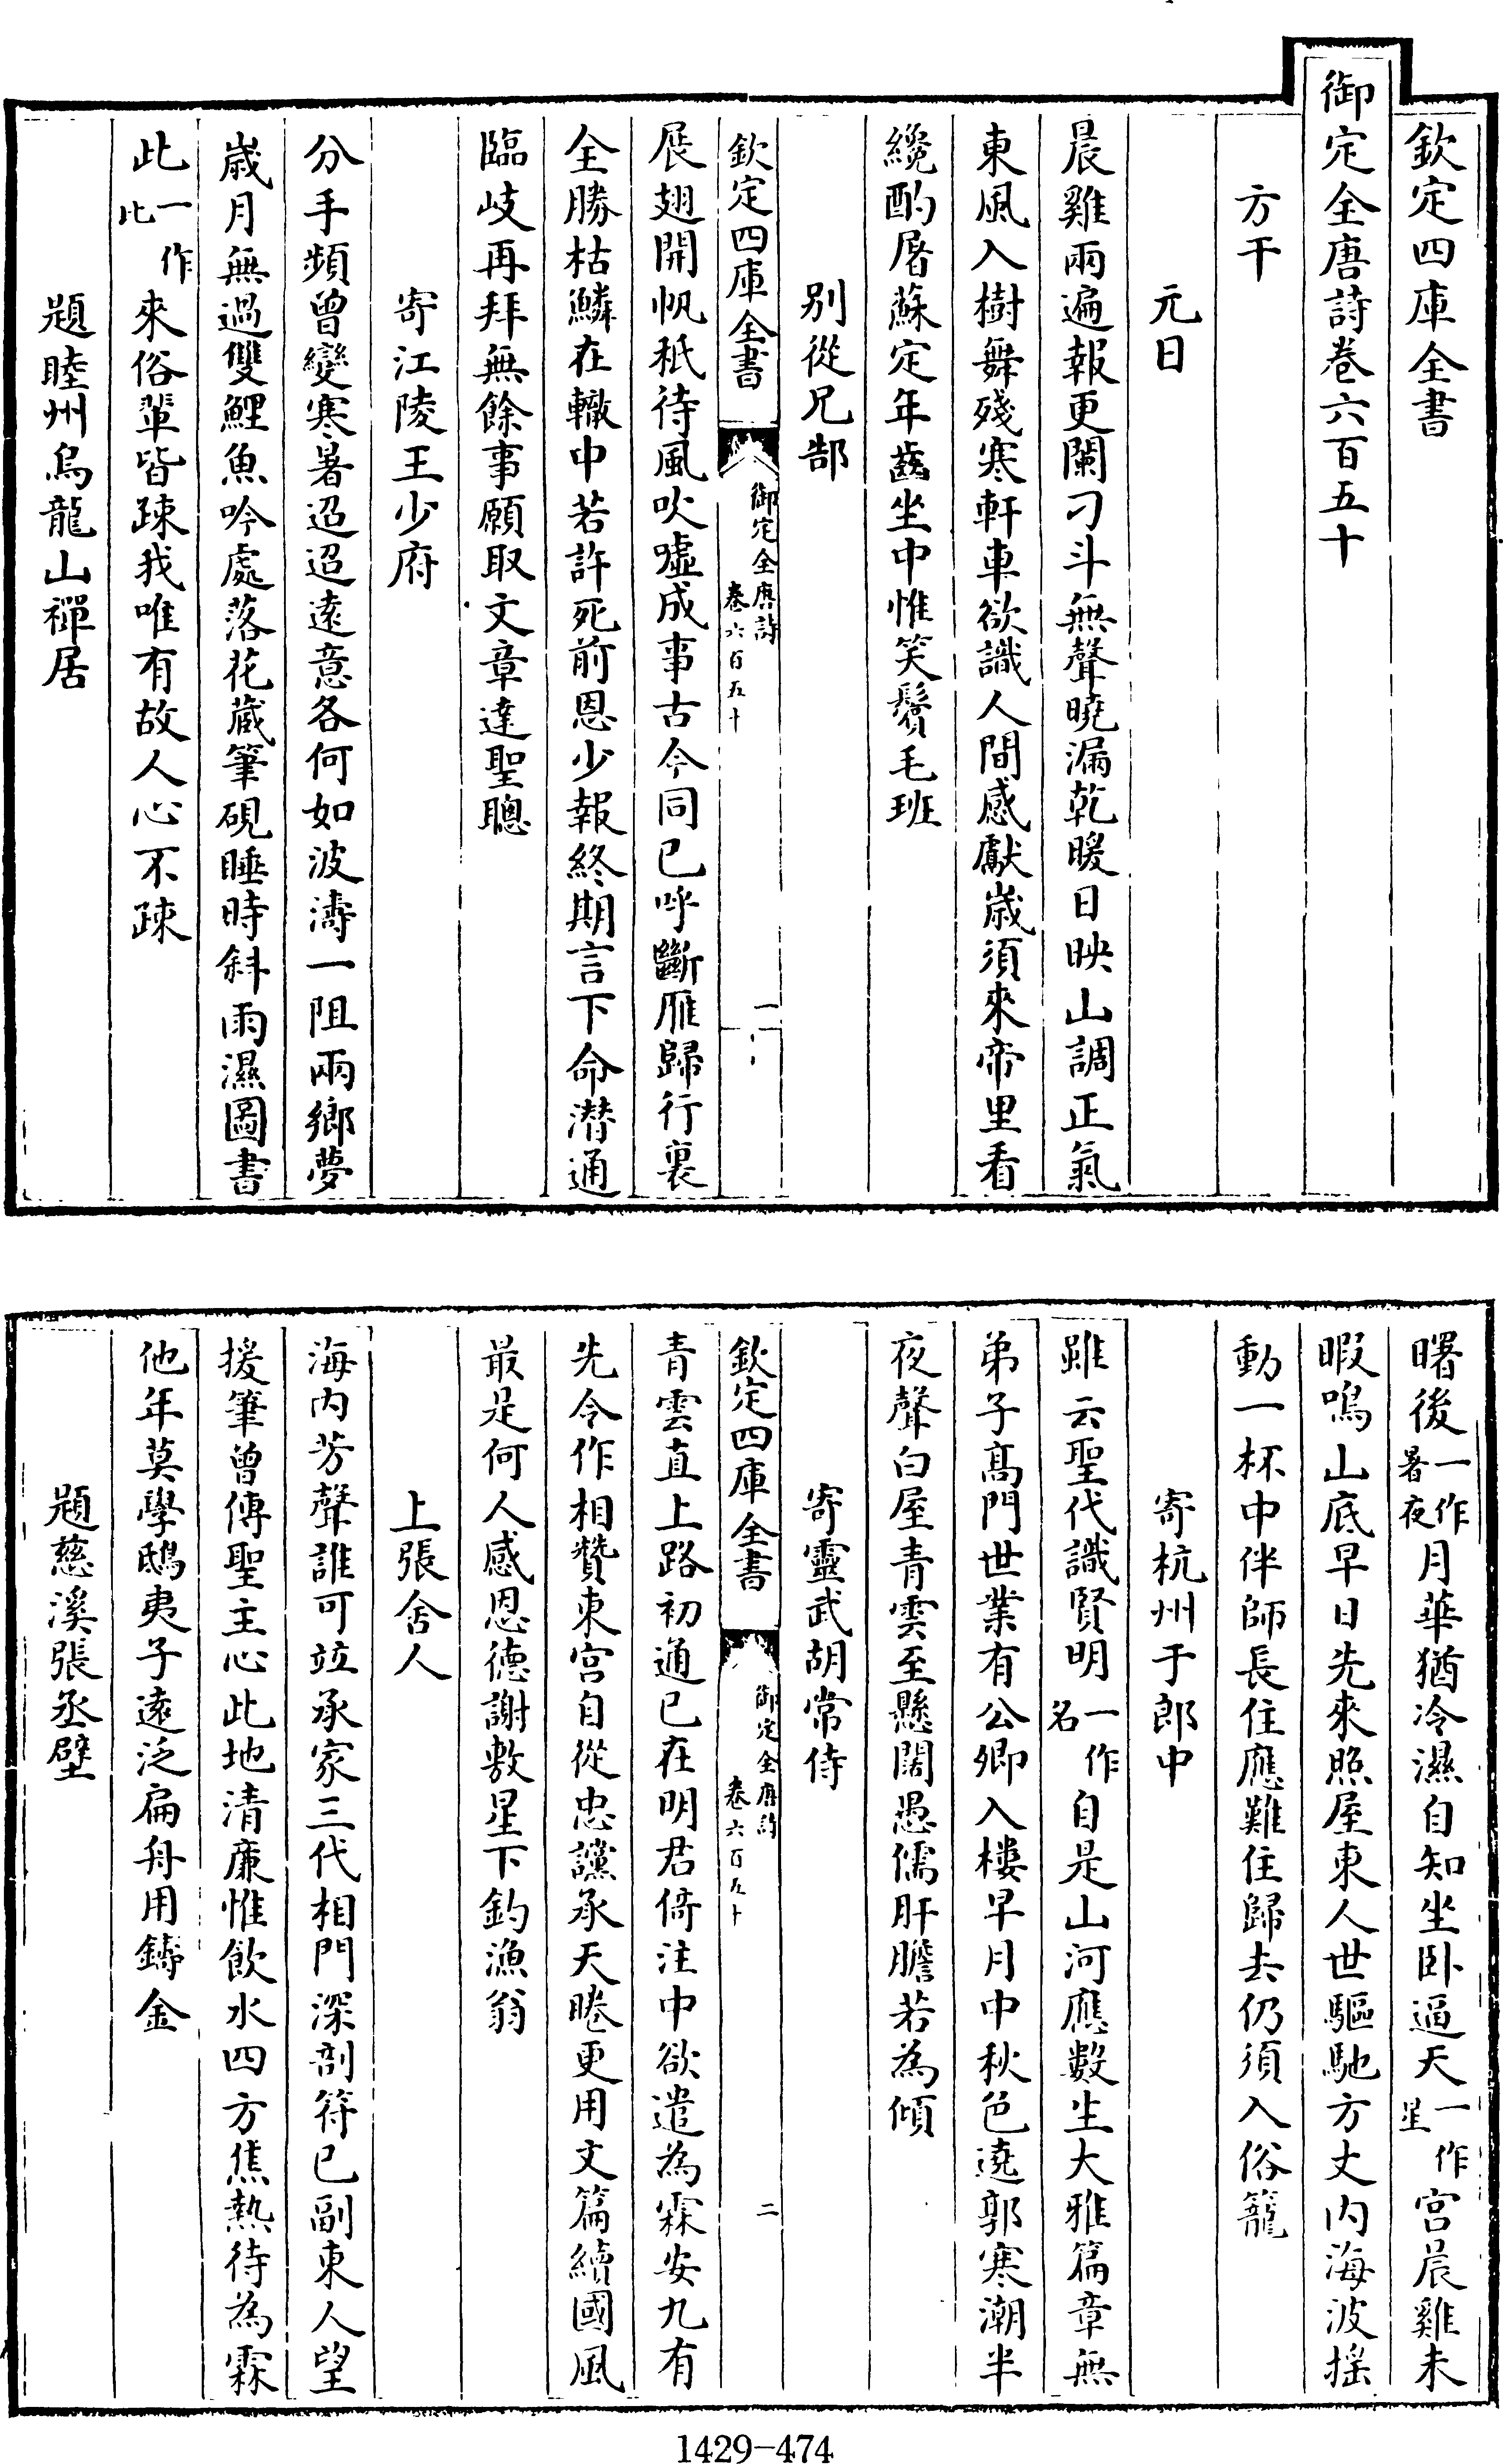 欽定四庫全書
御定全唐詩卷六百五十
方干
元日
晨雞兩遍報更闌刁斗無聲曉漏乾暖日映山調正氣
東風入樹舞殘寒軒車欲識人間感獻歲須來帝里看
纔酌屠蘇定年齒坐中惟笑鬢毛班
別從兄郜
欽定四庫全書 御定全唐詩 卷六百五十 一
展翅開帆秖待風吹噓成事古今同已呼斷雁歸行裏
全勝枯鱗在轍中若許死前恩少報終期言下命潛通
臨岐再拜無餘事願取文章達聖聰
寄江陵王少府
分手頻曾變寒暑迢迢遠意各何如波濤一阻兩鄉夢
歲月無過雙鯉魚吟處落花藏筆硯睡時斜雨濕圖書
此一作比來俗輩皆疎我唯有故人心不疎
題睦州烏龍山禪居
曙後一作暑夜月華猶冷濕自知坐卧逼天一作星宮晨雞未
暇鳴山底早日先來照屋東人世驅馳方丈内海波揺
動一杯中伴師長住應難住歸去仍須入俗籠
寄杭州于郎中
雖云聖代識賢明一作名自是山河應數生大雅篇章無
弟子髙門世業有公卿入樓早月中秋色遶郭寒潮半
夜聲白屋青雲至懸闊愚儒肝膽若為傾
寄靈武胡常侍
欽定四庫全書 御定全唐詩 卷六百五十 二
青雲直上路初通已在明君倚注中欲遣為霖安九有
先令作相贊東宮自從忠讜承天睠更用文篇續國風
最是何人感恩德謝敷星下釣漁翁
上張舍人
海内芳聲誰可竝承家三代相門深剖符已副東人望
援筆曾傳聖主心此地清廉惟飲水四方焦熱待為霖
他年莫學鴟夷子遠泛扁舟用鑄金
題慈溪張丞壁
1429-474